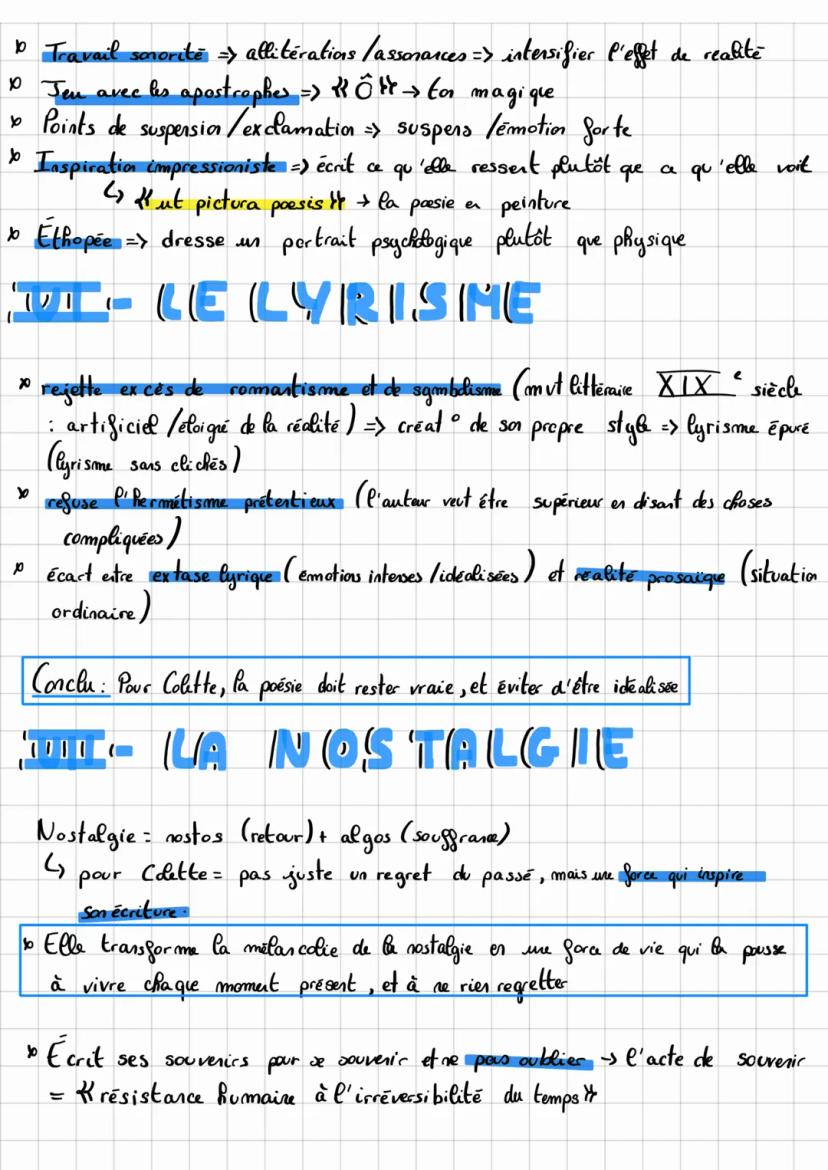 Travail sonorité => allitérations /assonances => intensifier l'effet de realité
Jeu avec les apostrophes => « Ô » → ton magique
Points de suspension/exclamation => suspens /émotion forte
Inspiration impressioniste => écrit ce qu'elle ressent plutôt que ce qu'elle voit
↳ « ut pictura poesis » → la poesie en peinture
Éthopée => dresse un portrait psychologique plutôt que physique
VI - LE LYRISME
rejette excès de romantisme et de symbolisme (mvt littéraire XIXe siècle
: artificiel /éloigné de la réalité) => créat° de son propre style => lyrisme épuré
(lyrisme sans clichés)
refuse l'hermétisme prétentieux (l'auteur veut être supérieur en disant des choses
compliquées)
écart entre extase lyrique (émotions intenses /idéalisées) et réalité prosaïque (situation
ordinaire)
Conclu : Pour Colette, la poésie doit rester vraie, et éviter d'être idéalisée
VII - LA NOSTALGIE
Nostalgie = nostos (retour) + algos (souffrance)
↳ pour Colette = pas juste un regret du passé, mais une force qui inspire
son écriture.
Elle transforme la mélancolie de la nostalgie en une force de vie qui la pousse
à vivre chaque moment présent, et à ne rien regretter
Écrit ses souvenirs pour se souvenir et ne pas oublier → l'acte de souvenir
= « résistance humaine à l'irréversibilité du temps »